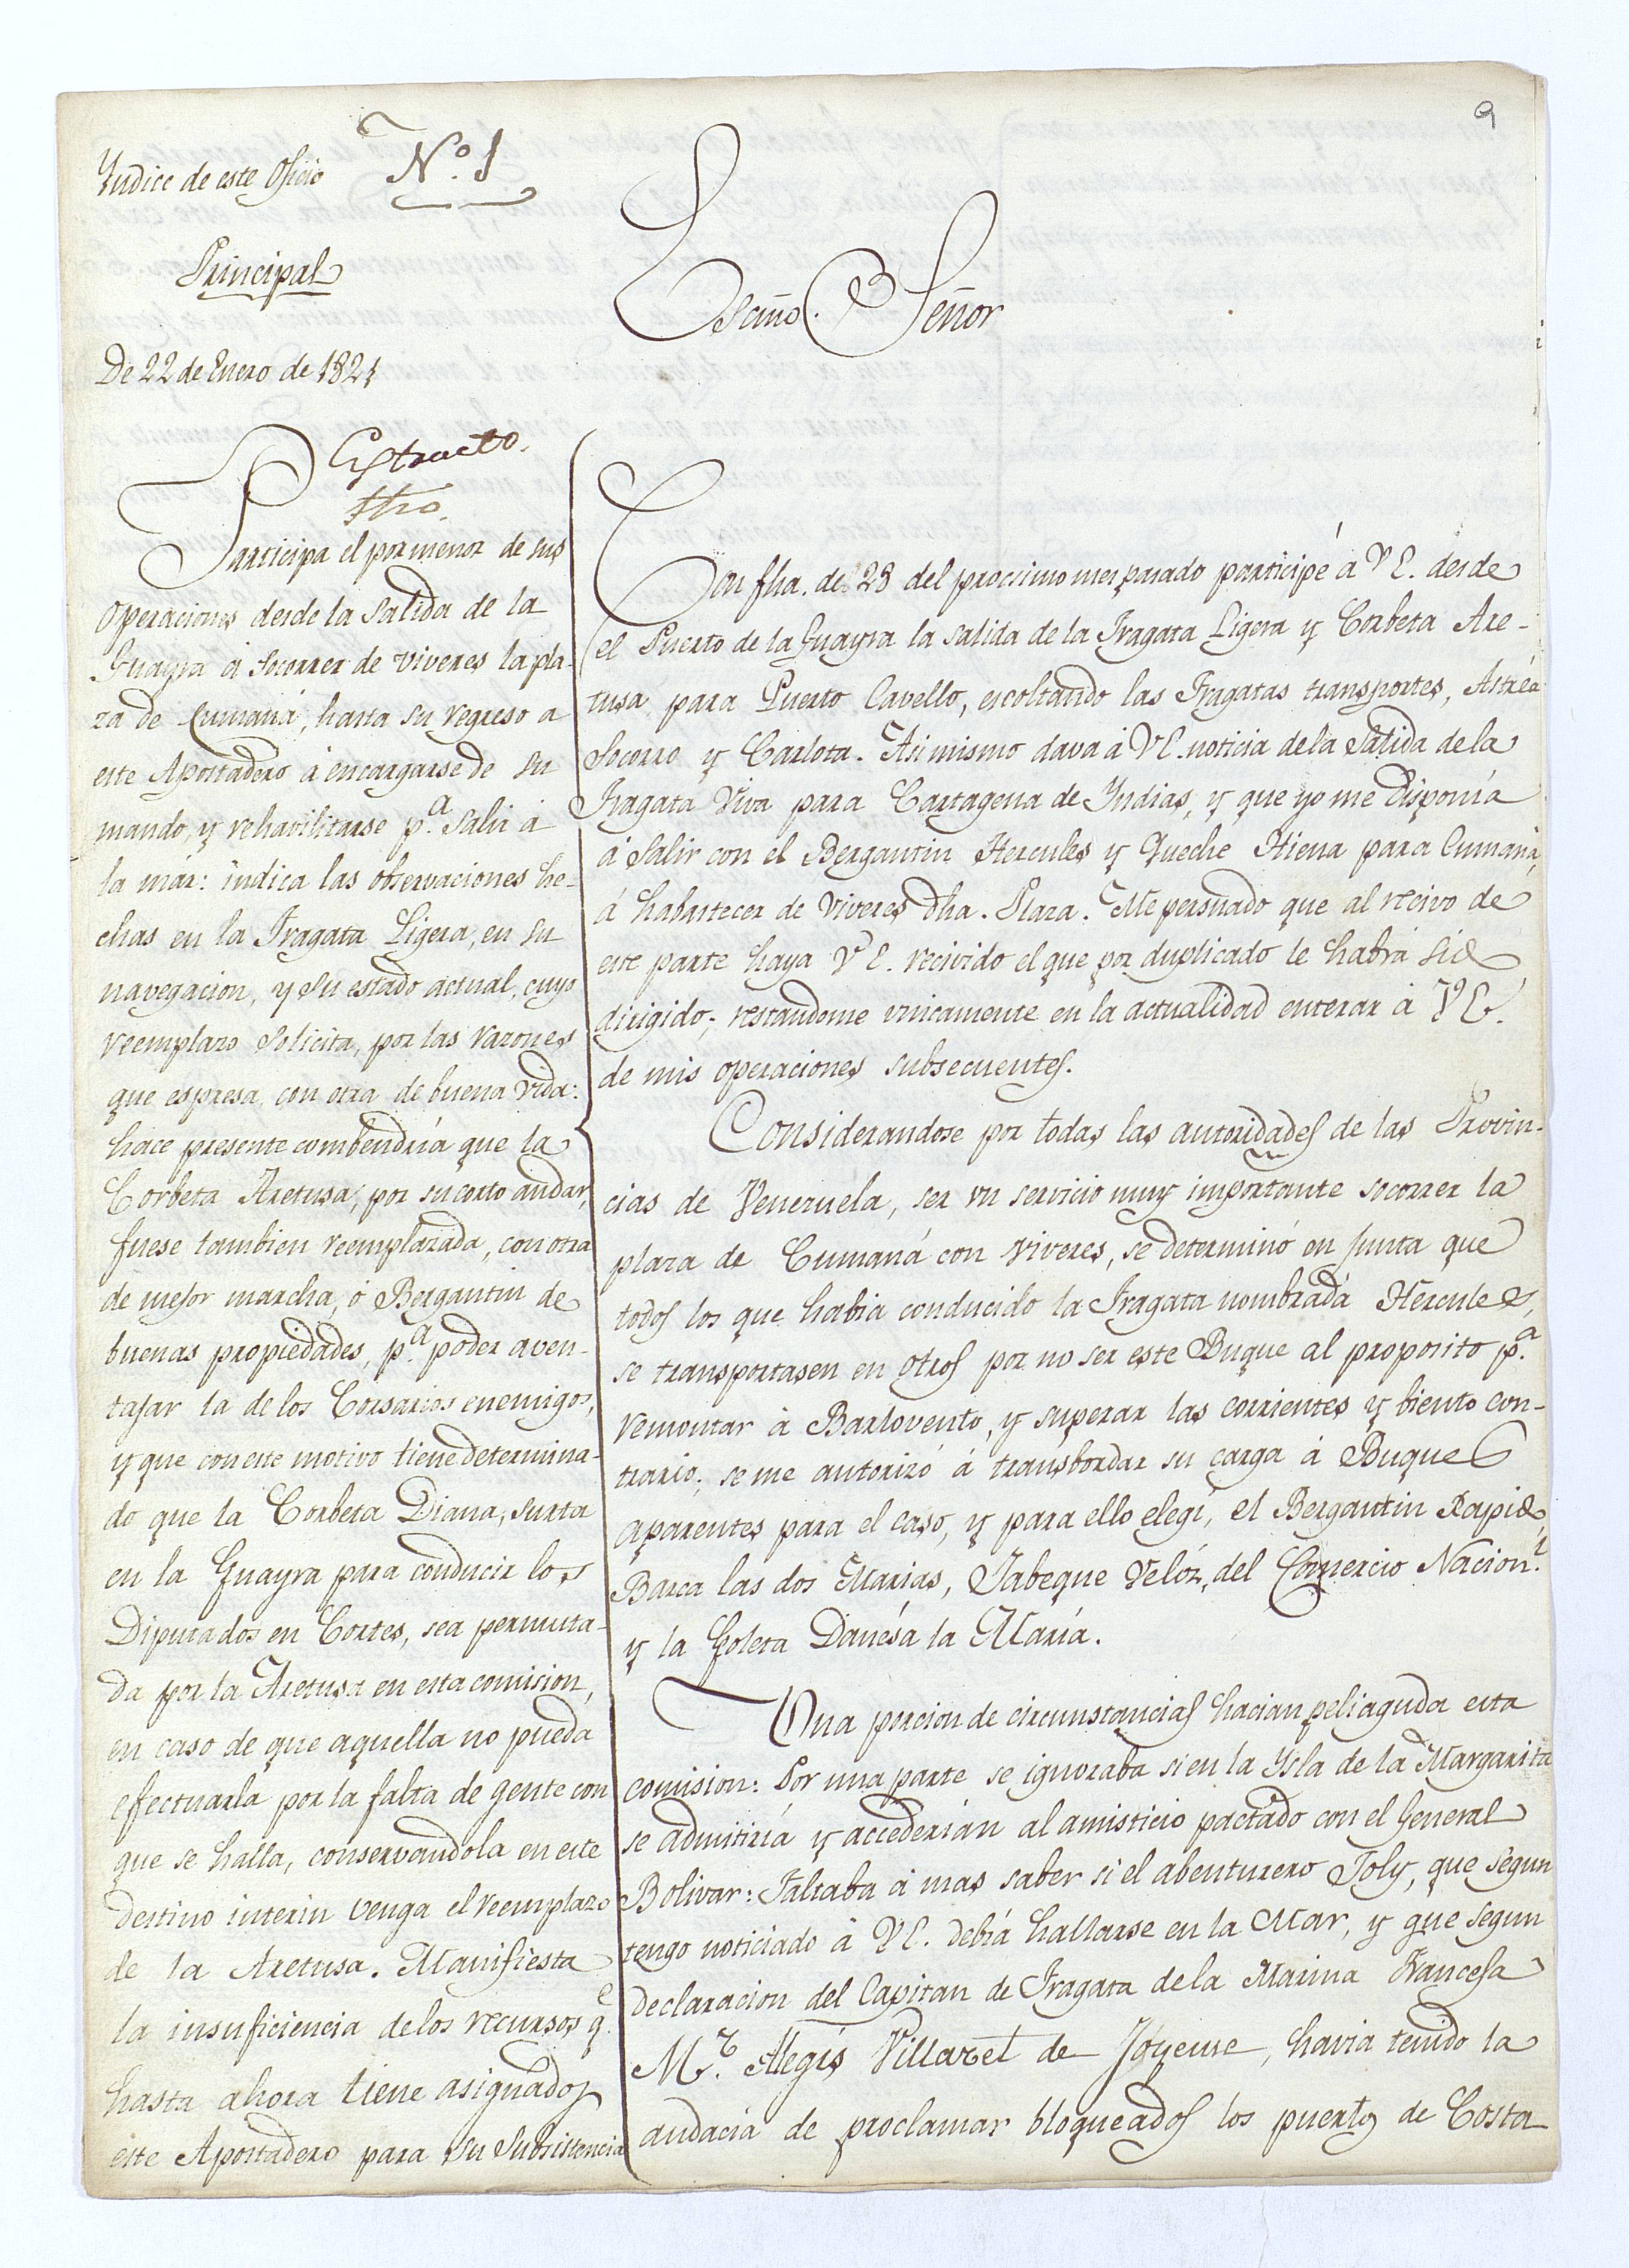 9
Yndice de este Oficio Nº. 1
Principal
De 22 de Enero de 1821
Escmo. Señor
Extracto.
Participa el pormenor de sus
operaciones desde la salida de la
Guayra á socorrer de viveres la pla-
za de Cumaná, hasta su regreso a
este Apostadero á encargarse de su
mando, y rehavilitarse p.ª salir á
la mar: indica las observaciones he-
chas en la Fragata Ligera, en su
navegacion, y su estado actual, cuyo
reemplazo solicita, por las razones
que espresa, con otra de buena vida:
hace presente combendría que la
Corbeta Aretusa, por su corto andar,
fuese tambien reemplazada, con otra
de mejor marcha, ó Bergantin de
buenas propiedades, p.ª poder aven-
tajar la de los Corsarios enemigos,
y que con este motivo tiene determina-
do que la Corbeta Diana, surta
en la Guayra para conducir los
Diputados en Cortes, sea permuta-
da por la Aretusa en esta comision,
en caso de que aquella no pueda
efectuarla por la falta de gente con
que se halla, conservandola en este
destino interin venga el reemplazo
de la Aretusa. Manifiesta
la insuficiencia de los recursos q.e
hasta ahora tiene asignados
este Apostadero para su subsistencia
Con fha. de 28 del procsimo mes pasado participé á V E. desde
el Puerto de la Guayra la salida de la Fragata Ligera y Corbeta Are-
tusa para Puerto Cavello, escoltando las Fragatas transportes, Astréa
Socorro y Carlota. Asi mismo dava á V E. noticia de la salida de la
Fragata Viva para Cartagena de Yndias, y que yo me disponía
á salir con el Bergantin Hercules y Queche Hiena para Cumaná,
á habastecer de viveres dha. Plaza. Me persuado que al recivo de
este parte haya V E. recivido el que por duplicado le habrá sido
dirigido; restandome unicamente en la actualidad enterar á V E.
de mis operaciones subsecuentes.
Considerandose por todas las autoridades de las Provin-
cias de Venezuela, ser un servicio muy importante socorrer la
plaza de Cumaná con viveres, se determinó en junta que
todos los que habia conducido la Fragata nombrada Hercules,
se transportasen en otros por no ser este Buque al proposito p.ª
remontar á Barlovento, y superar las corrientes y biento con-
trario; se me autorizó á transbordar su carga á Buques
aparentes para el caso, y para ello elegí, el Bergantin Rapido,
Barca las dos Marias, Jabeque Velóz, del Comercio Nacion.l
y la Goleta Danésa la María.
Una porcion de circunstancias hacian peliaguda esta
comision: Por una parte se ignoraba si en la Ysla de la Margarita
se admitiría y accederían al amisticio pactado con el General
Bolivar: Faltaba á mas saber si el abenturero Joly, que segun
tengo noticiado á V E. debía hallarse en la Mar, y que segun
declaracion del Capitan de Fragata de la Marina Francesa
M.r Alegis Villaret de Joyeuse, havia tenido la
audacia de proclamar bloqueados los puertos de Costa